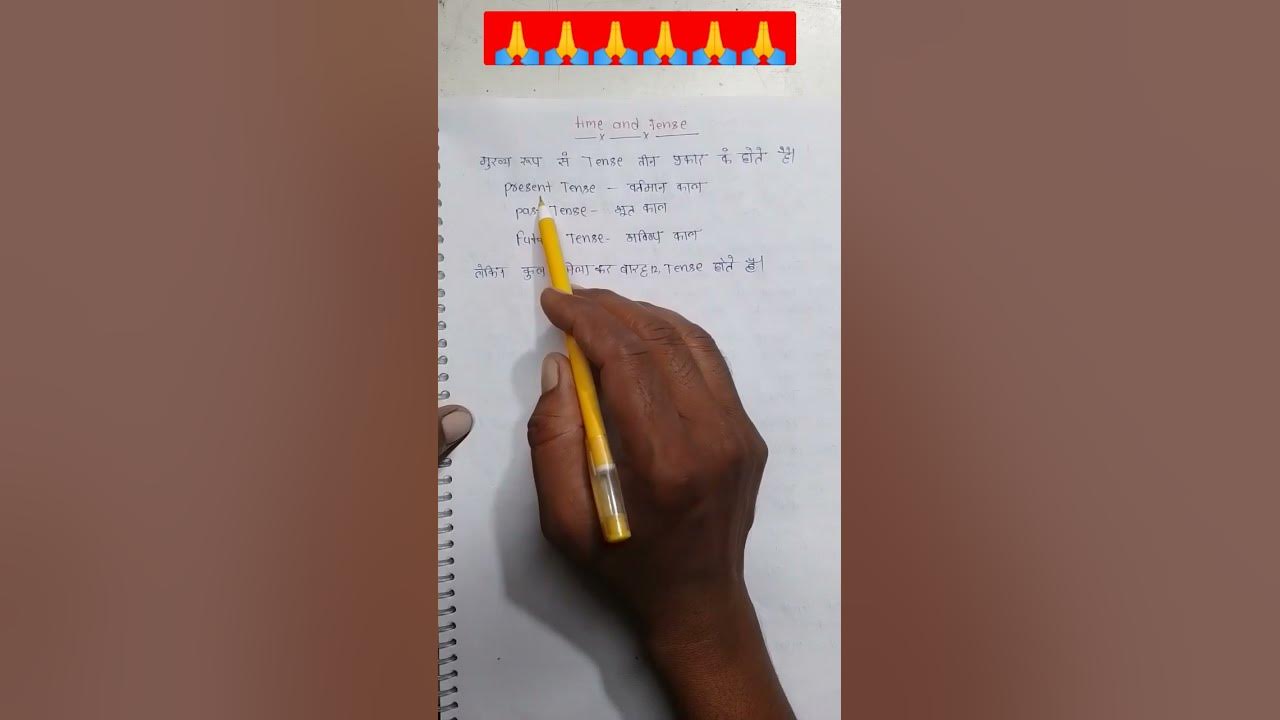 time and Tense
मुख्य रूप से Tense तीन प्रकार के होते है।
present Tense - वर्तमान काल
Tense - भूत काल
Tense - भविष्य काल
लेकिन कुल कर बारह 12, Tense होते है।